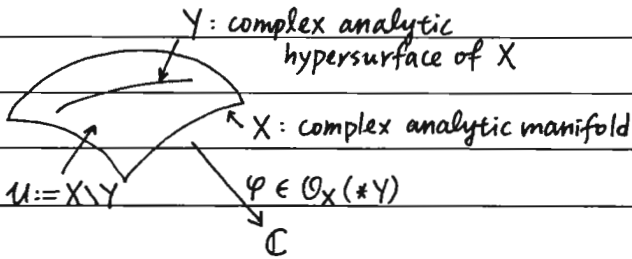 Y : complex analytic
hypersurface of X
X : complex analytic manifold
U := X\Y
φ ∈ O_X(*Y)
ℂ